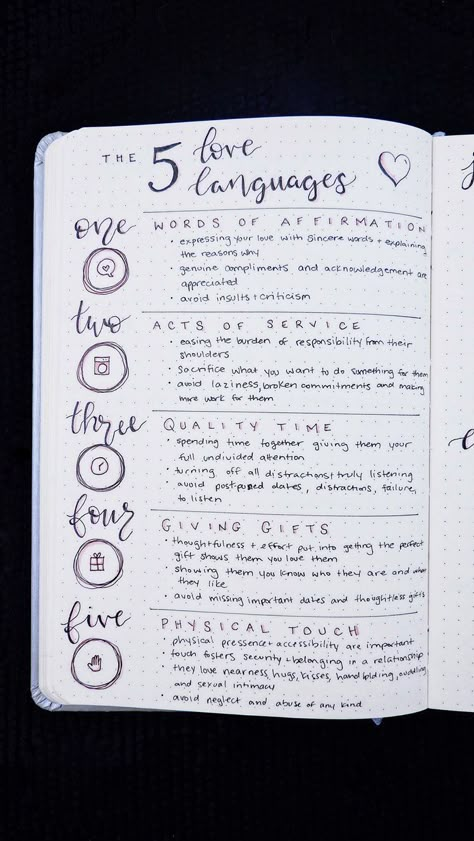 THE 5 love languages
one
WORDS OF AFFIRMATION
• expressing your love with sincere words + explaining
the reasons why
• genuine compliments and acknowledgement are
appreciated
• avoid insults + criticism
two
ACTS OF SERVICE
• easing the burden of responsibility from their
shoulders
• sacrifice what you want to do something for them
• avoid laziness, broken commitments and making
more work for them
three
QUALITY TIME
• spending time together giving them your
full undivided attention
• turning off all distractions + truly listening
• avoid postponed dates, distractions, failure
to listen
four
GIVING GIFTS
• thoughtfulness + effort put into getting the perfect
gift shows them you love them
• showing them you know who they are and what
they like
• avoid missing important dates and thoughtless gifts
five
PHYSICAL TOUCH
• physical pressence + accessibility are important
• touch fosters security + belonging in a relationship
• they love nearness, hugs, kisses, hand holding, cuddling
and sexual intimacy
• avoid neglect and abuse of any kind